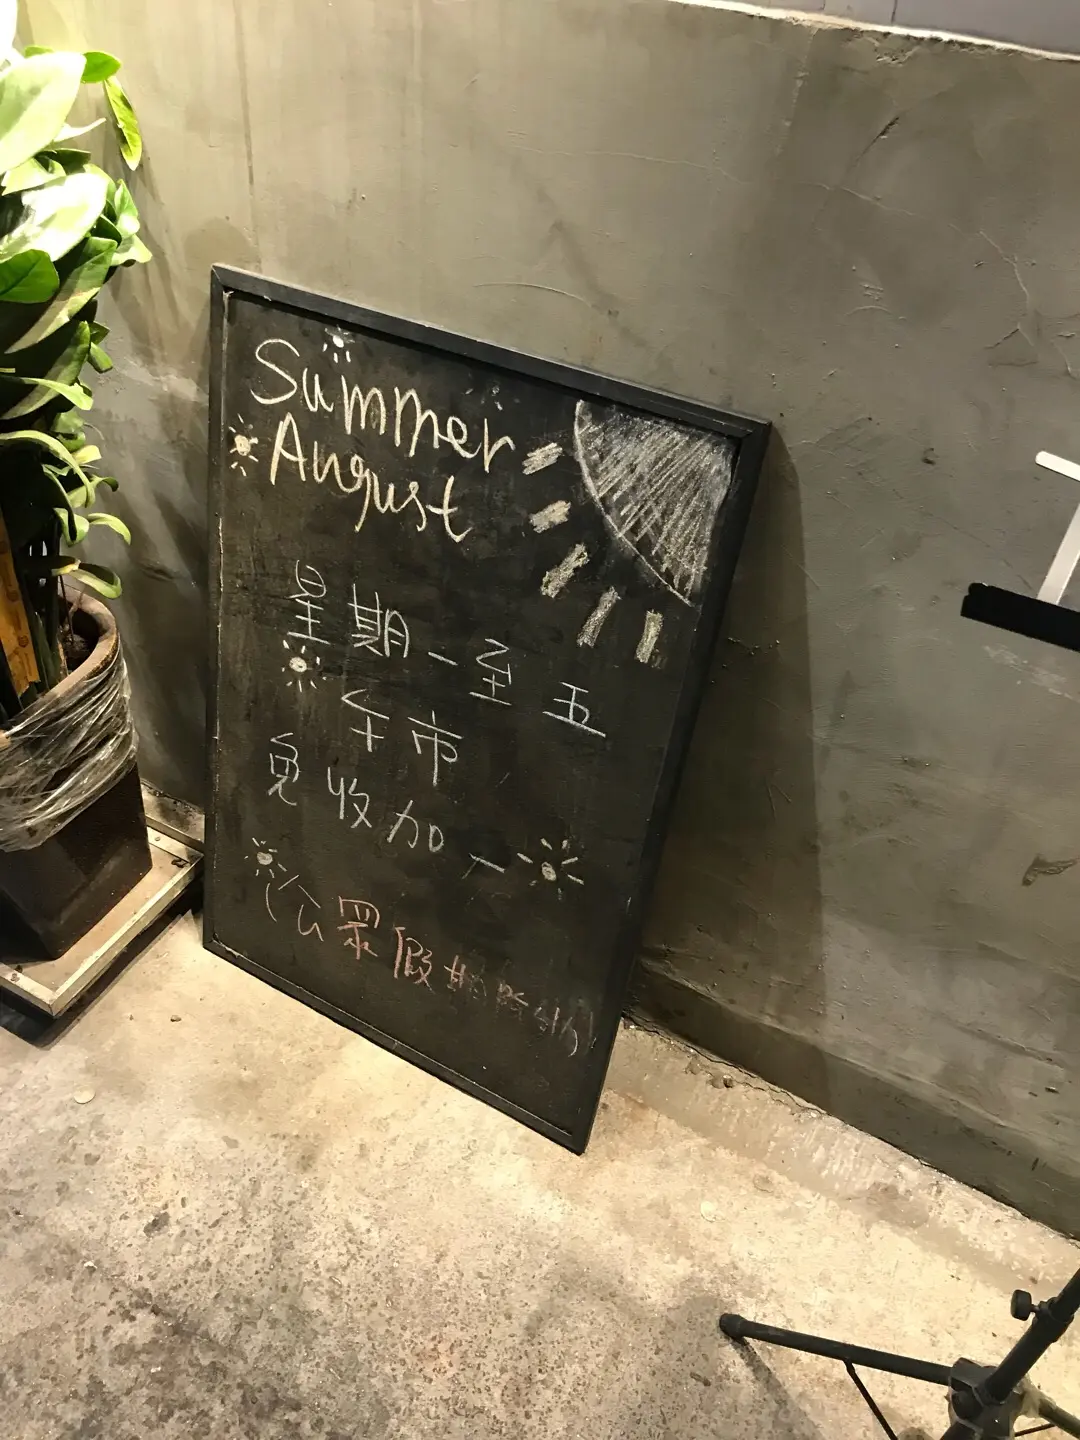 Summer
August
星期一至五
午市
免收加一
(公眾假期除外)